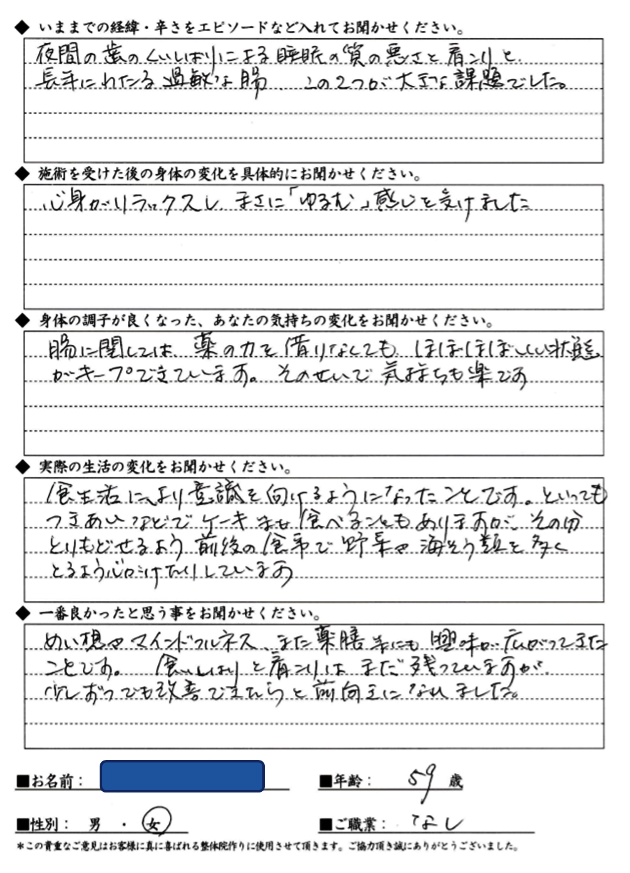 ◆ いままでの経緯・辛さをエピソードなど入れてお聞かせください。
夜間の歯のくいしばりによる睡眠の質の悪さと肩こりと、
長年にわたる過敏な腸、この2つが大きな課題でした。
◆ 施術を受けた後の身体の変化を具体的にお聞かせください。
心身がリラックスし、まさに「ゆるむ」感じを受けました
◆ 身体の調子が良くなった、あなたの気持ちの変化をお聞かせください。
腸に関しては、薬の力を借りなくても、ほぼほぼいい状態
がキープできています。そのせいで気持ちも楽です
◆ 実際の生活の変化をお聞かせください。
食生活に、より意識を向けるようになったことです。といっても
つきあいなどでケーキ等も食べることもありますが、その分
とりもどせるよう前後の食事で野菜や海そう類を多く
とるよう心がけたりしています
◆ 一番良かったと思う事をお聞かせください。
めい想やマインドフルネス、また薬膳等にも興味が広がってきた
ことです。食いしばりと肩こりはまだ残っていますが、
少しずつでも改善できたらと前向きになれました。
■お名前：
■年齢： 59 歳
■性別： 男 ・ 女
■ご職業： なし
＊この貴重なご意見はお客様に真に喜ばれる整体院作りに使用させて頂きます。ご協力頂き誠にありがとうございました。